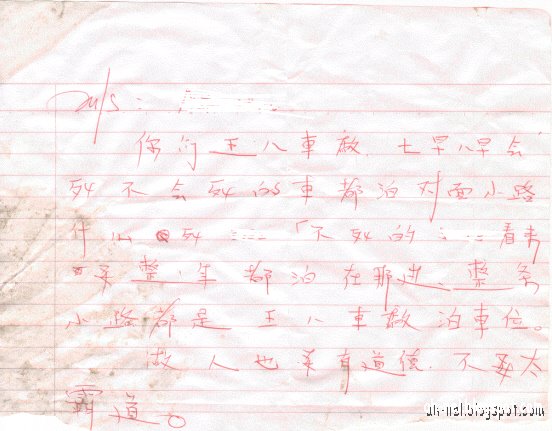 M/S:
你们王八車廠. 七早八早会
死不会死的車都泊対面小路
什山死 「不死的 看来
来整年都泊在那边、整条
小路都是王八車廠泊車位。
做人也要有道德. 不要太
霸道。
uh-nal.blogspot.com